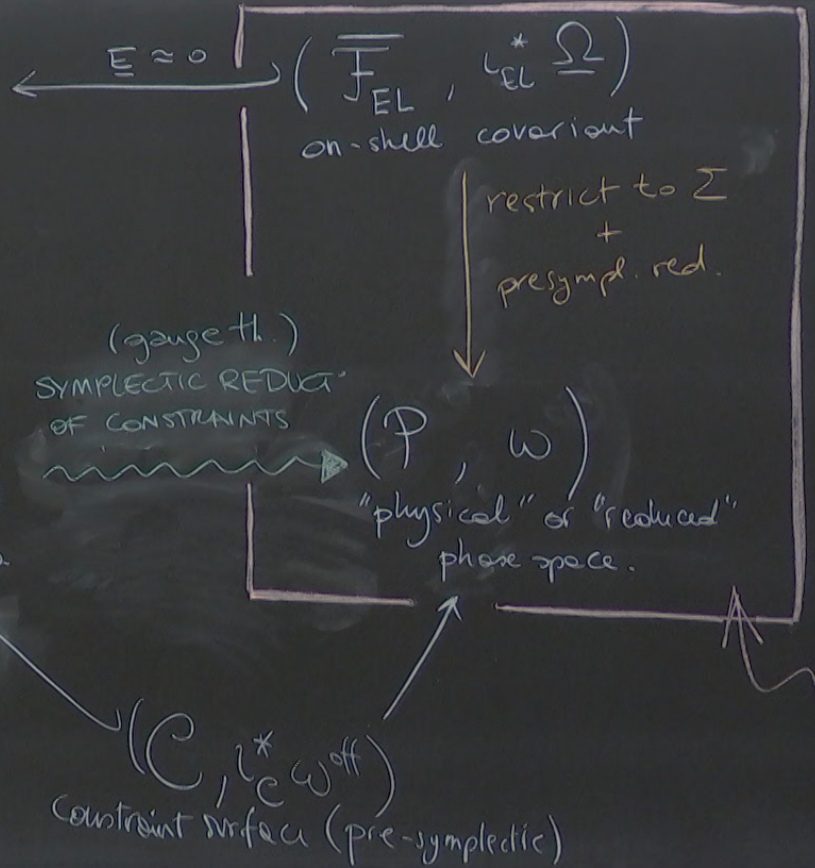 E ≈ 0
( F̅_EL , ι*_EL Ω )
on-shell covariant
restrict to Σ
+
presympl. red.
(gauge th.)
SYMPLECTIC REDUCT.
OF CONSTRAINTS
(P, ω)
"physical" or "reduced"
phase space.
(C, ι*_C ω^off)
constraint surface (pre-symplectic)